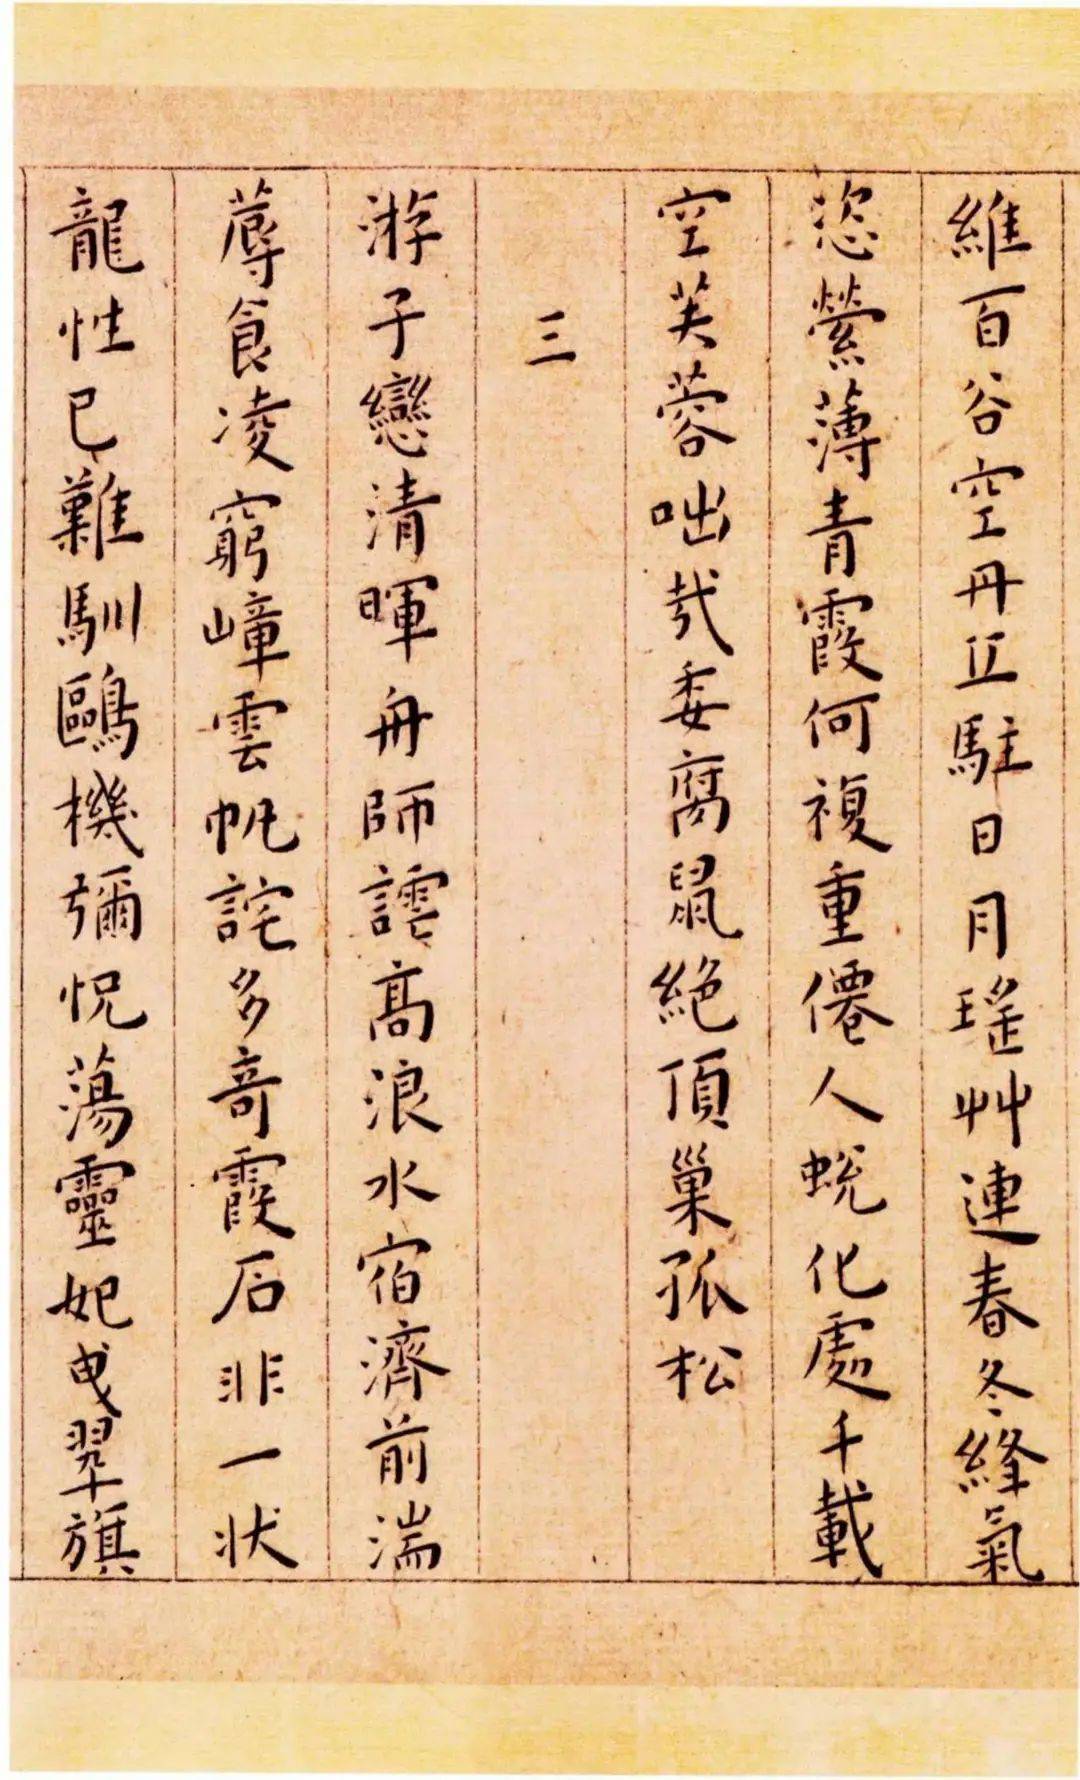 維百谷空丹丘駐日月瑤艸連春冬絳氣
恣縈薄青霞何複重僊人蛻化處千載
空芙蓉咄哉委腐鼠絕頂巢孤松
三
游子戀清暉舟師譁高浪水宿濟前湍
蓐食凌窮嶂雲帆詫多奇霞石非一狀
龍性已難馴鷗機彌怳蕩靈妃曳翠旗